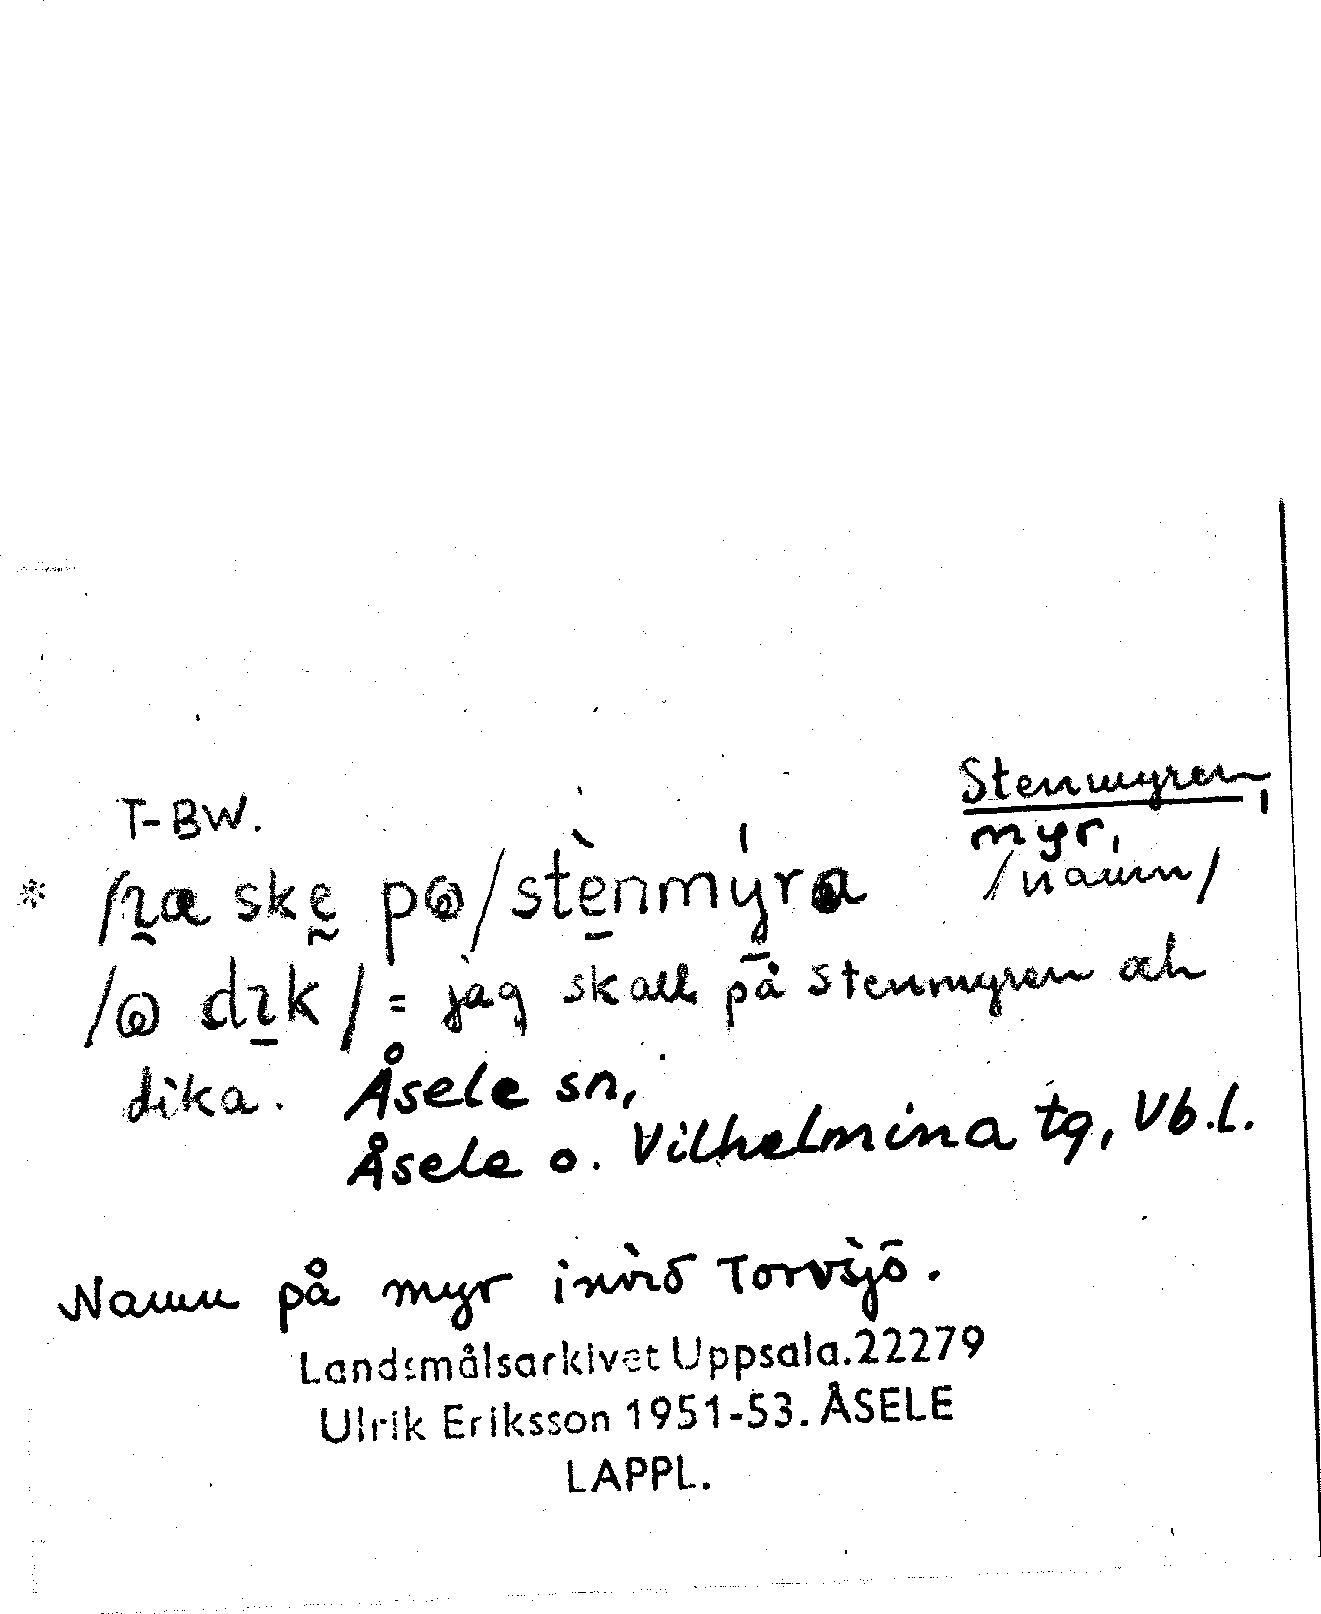 Stenmyren,
T-BW.
myr,
/namn/
* /ɿæ skḛ pɷ/stènmýra
/ɷ dɿk/ = jag skall på Stenmyren och
dika. Åsele sn,
Åsele o. Vilhelmina tg, Vb.l.
Namn på myr invið Torvsjö.
Landsmålsarkivet Uppsala.22279
Ulrik Eriksson 1951-53. ÅSELE
LAPPL.